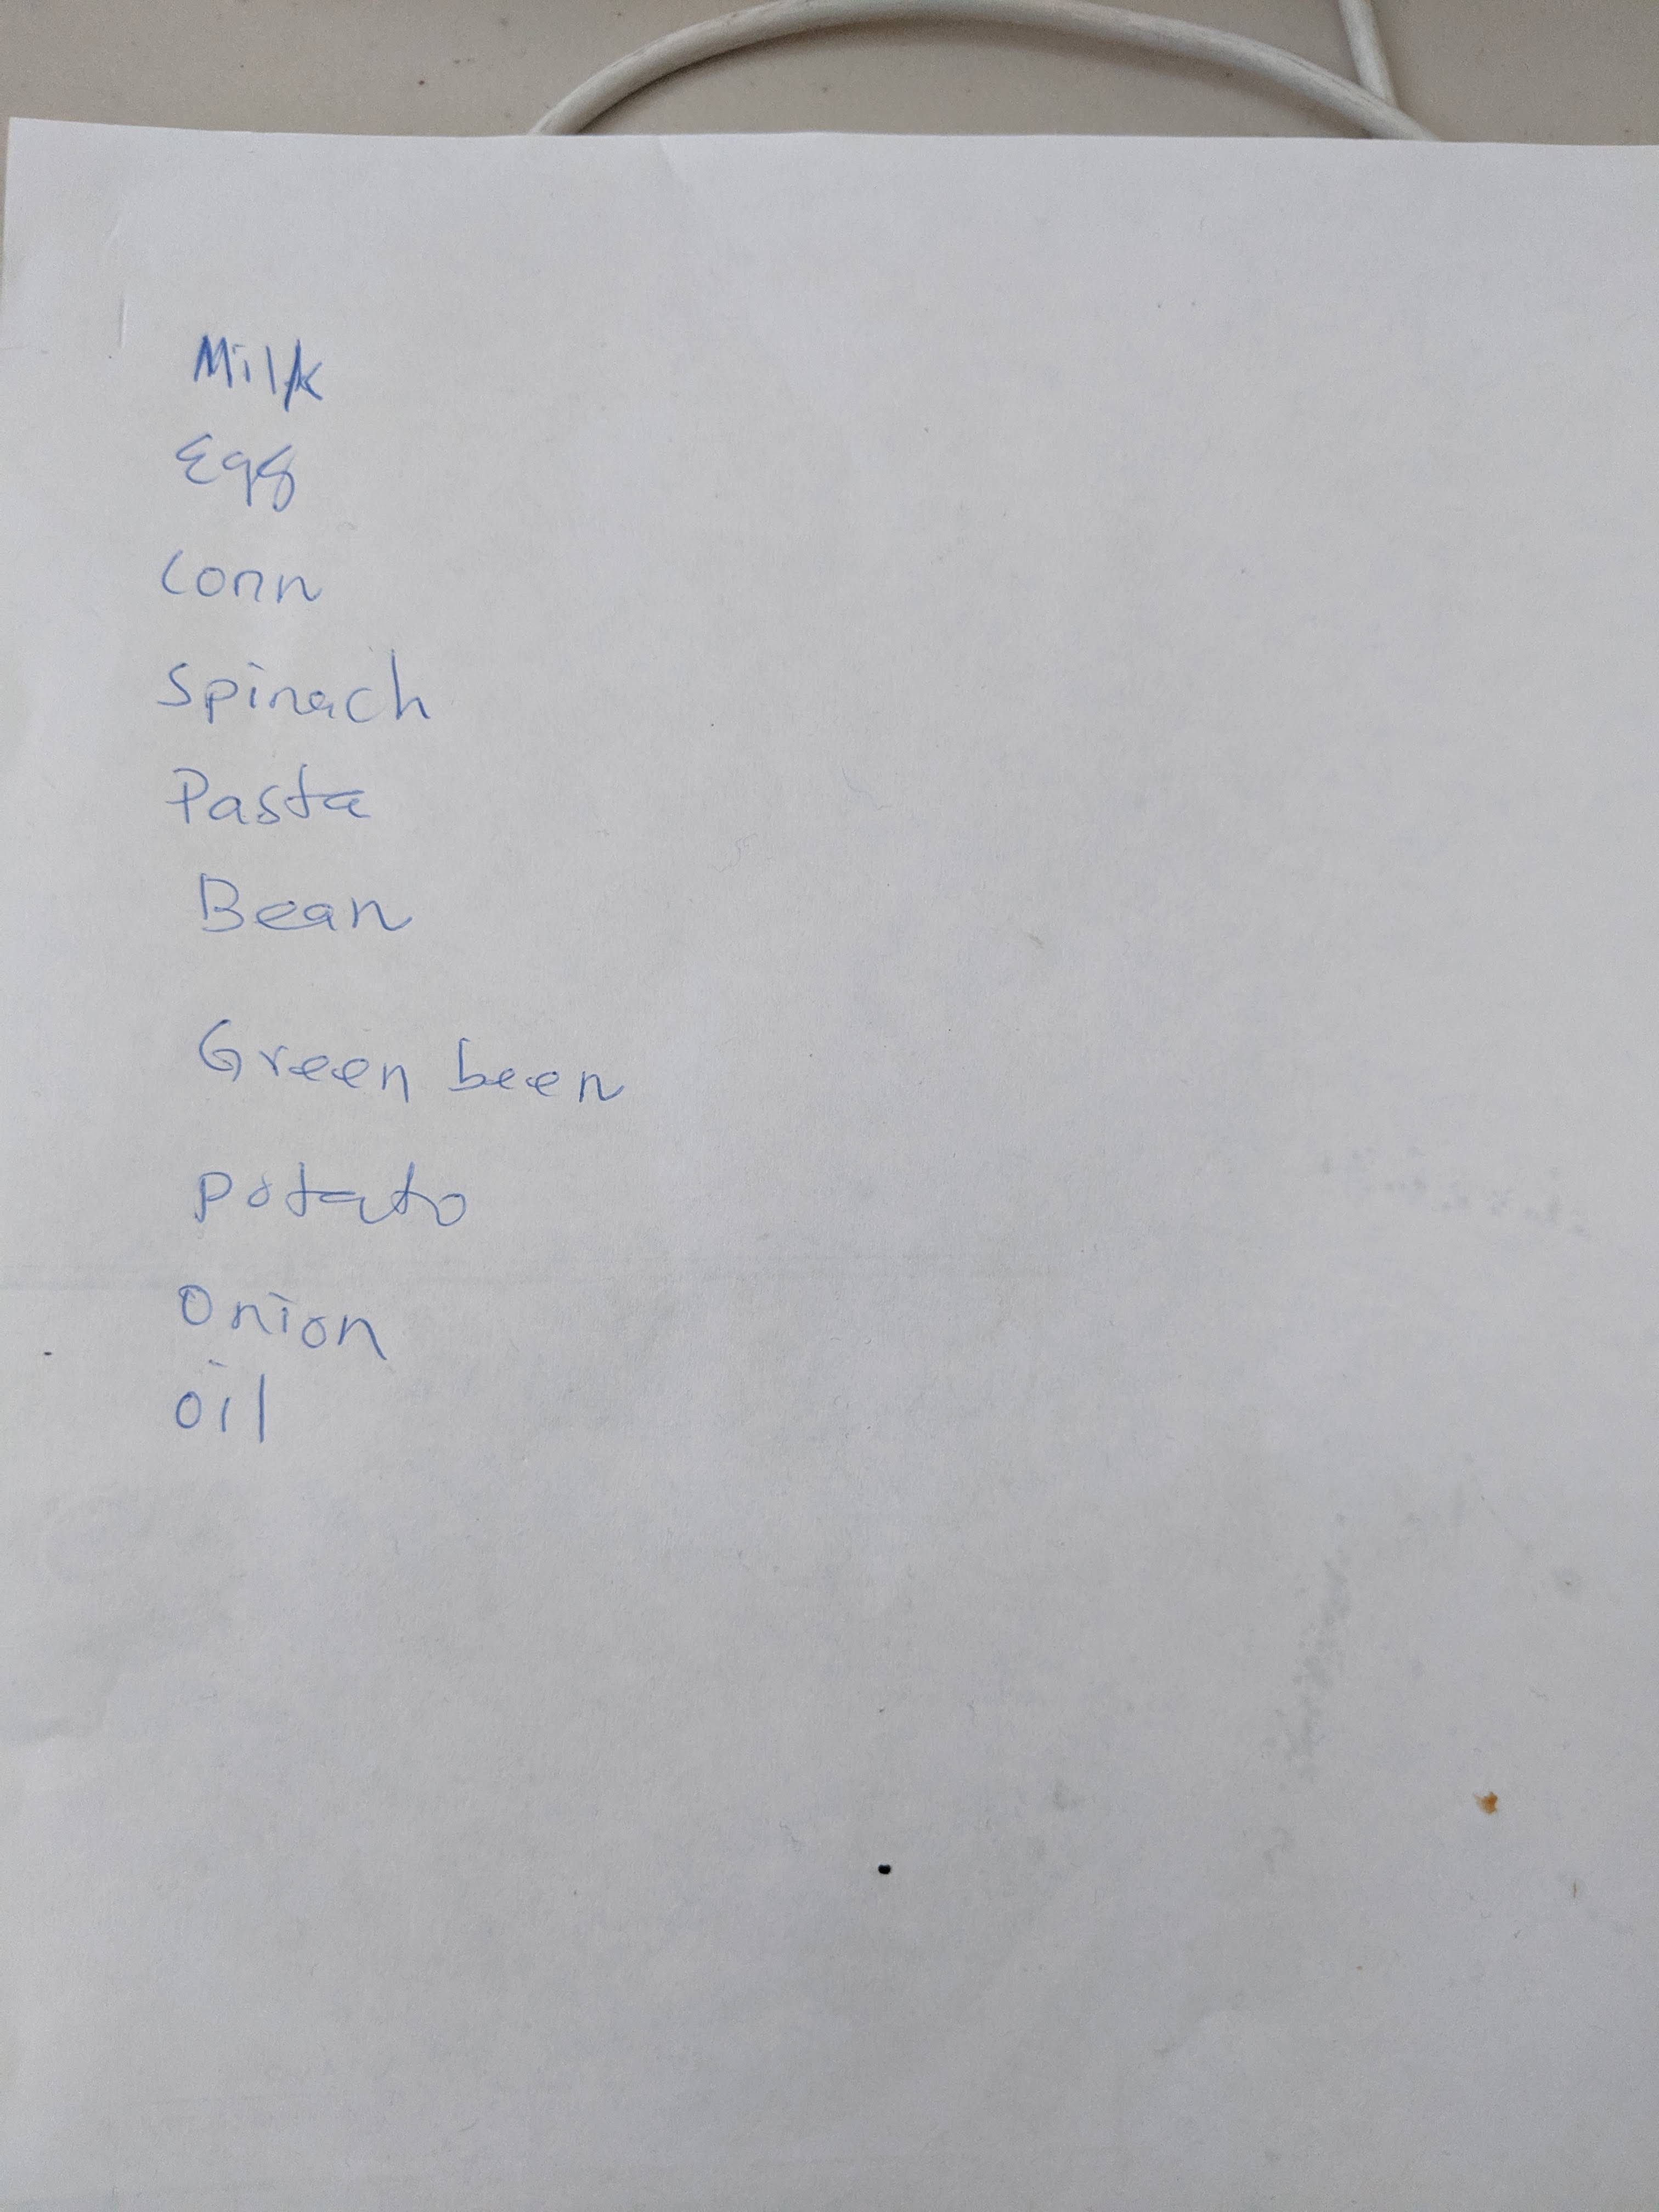 Milk
Egg
Corn
Spinach
Pasta
Bean
Green been
potato
Onion
oil